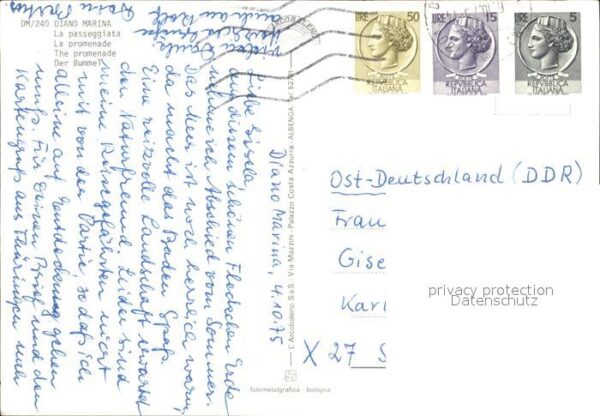 DM/240 DIANO MARINA
La passeggiata
La promenade
The promenade
Der Bummel
Diano Marina, 4.10.75
Liebe Gisela,
auf diesem schönen Fleckchen Erde
nehme ich Abschied vom Sommer.
Das Meer ist noch herrlich warm,
da macht das Baden Spaß.
Eine reizvolle Landschaft erwartet
den Naturfreund. Leider sind
meine Reisegefährten nicht
mit von der Partie, so daß ich
alleine auf Entdeckung gehen
muß. Für Deinen Brief und den
Kartengruß aus Thüringen noch
vielen Dank.
Herzliche Grüße
auch an Rolf
L'Arcobaleno S.a.S. Via Mazzini - Palazzo Costa Azzurra - ALBENGA
fotometalgrafica - bologna
LIRE 50
REPUBBLICA
ITALIANA
LIRE 15
REPUBBLICA
ITALIANA
5
REPUBBLICA
ITALIANA
Ost-Deutschland (DDR)
Frau
Gise
Karl
X 27 S
privacy protection
Datenschutz